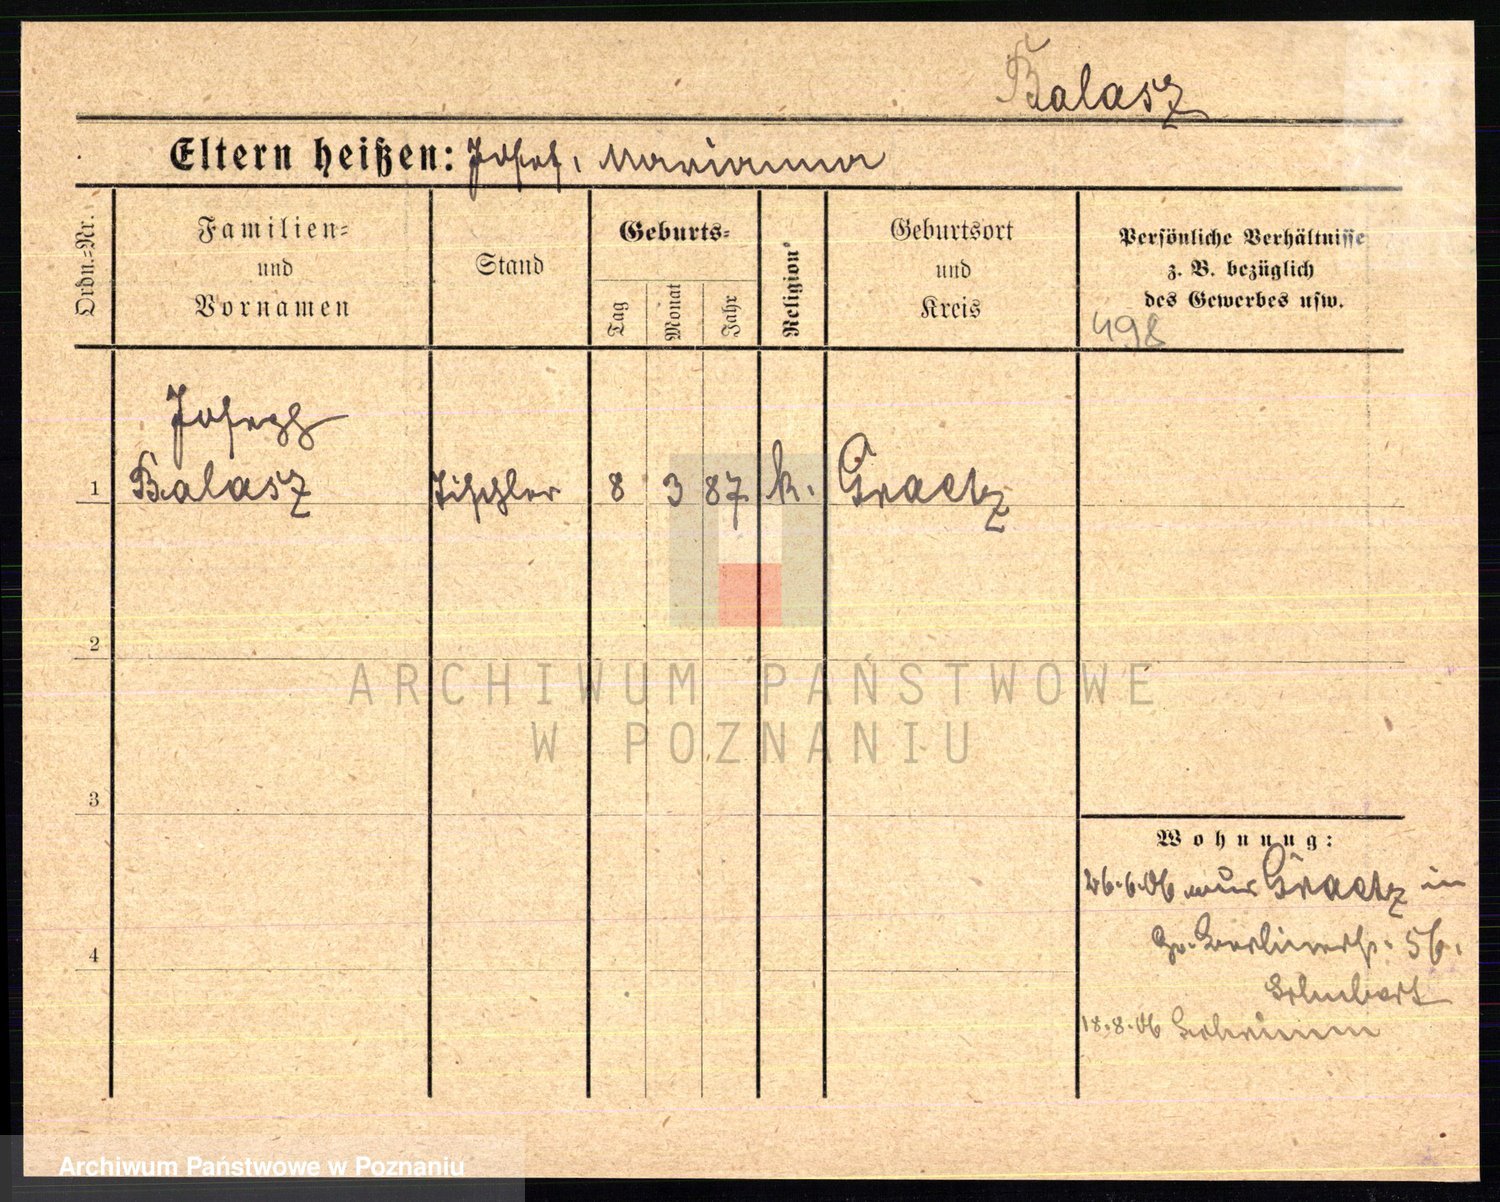 Balasz
Eltern heißen: Josef, Marianna
Ordn.-Nr.
Familien-
und
Vornamen
Stand
Geburts-
Tag
Monat
Jahr
Religion
Geburtsort
und
Kreis
Persönliche Verhältnisse
z. B. bezüglich
des Gewerbes usw.
498
Joseph
1 Balasz Tischler 8 3 87 k. Graetz
2
ARCHIWUM PAŃSTWOWE
W POZNANIU
3
Wohnung:
26.6.06 aus Graetz in
Berlinerstr. 56.
4
Schubert
18.8.06 Schrimm
Archiwum Państwowe w Poznaniu